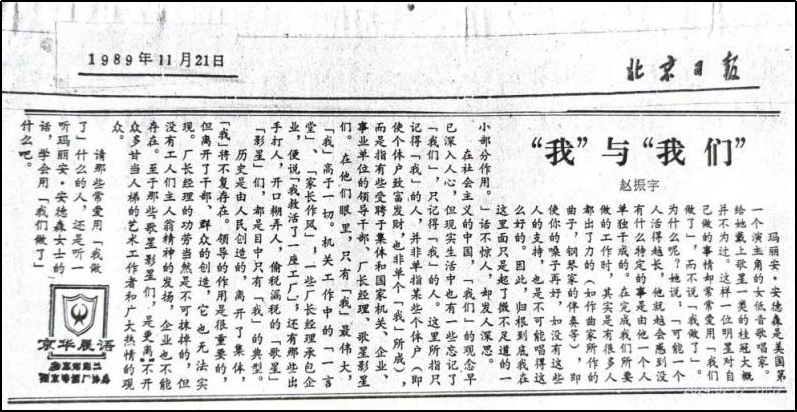 1989年11月21日
北京日报
“我”与“我们”
赵振宇
玛丽安·安德森是美国第
一个演主角的女低音歌唱家。
给她戴上歌星一类的桂冠大概
并不为过。这样一位明星对自
己做的事情却常常爱用「我们
做了」,而不说「我做了」。
为什么呢?她说:「可能一个
人活得越长,他就越会感到没
有什么特定的事是由他一个人
单独干成的。在完成我们所要
做的工作时,其实是有很多人
都出了力的(如作曲家所作的
曲子,钢琴家的伴奏等),即
使你的嗓子再好,如没有这些
人的支持,也是不可能唱得这
么好的。因此,归根到底我在
这里面只是起了微不足道的一
小部分作用。」话不惊人,却发人深思。
在社会主义的中国,「我们」的观念早
已深入人心,但现实生活中也有一些忘记了
「我们」,只记得「我」的人。这里所指只
记得「我」的人,并非单指某些个体户(即
使个体户致富发财,也非单个「我」所成),
而是指有些受聘于集体和国家机关、企业、
事业单位的领导干部、厂长经理、歌星影星
们。在他们眼里,只有「我」最伟大,
「我」高于一切。机关工作中的「一言
堂」、「家长作风」,一些厂长经理承包企
业,便说「我救活了一座工厂」;还有那些出
手打人,开口糊弄人,偷税漏税的「歌星」
「影星」们,都是目中只有「我」的典型。
历史是由人民创造的,离开了集体,
「我」将不复存在。领导的作用是很重要的,
但离开了干部、群众的创造,它也无法实
现。厂长经理的功劳当然是不可抹掉的,但
没有工人们主人翁精神的发扬,企业也不能
存在。至于那些歌星影星们,是更离不开
众多甘当人梯的艺术工作者和广大热情的观
众。
请那些常爱用「我做
了」什么的人,还是听一
听玛丽安·安德森女士的
话,学会用「我们做了」
什么吧。
京华晨语